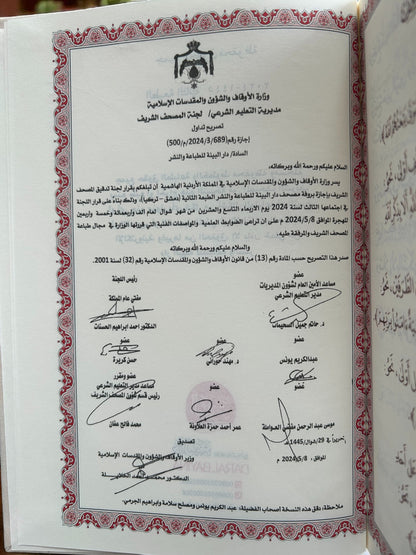 وزارة الأوقاف والشؤون والمقدسات الإسلامية
مديرية التعليم الشرعي/ لجنة المصحف الشريف
تصريح تداول
إجازة رقم (689/3/2024/م/500)
السادة/ دار البينة للطباعة والنشر
السلام عليكم ورحمة الله وبركاته.
يسر وزارة الأوقاف والشؤون والمقدسات الإسلامية في المملكة الأردنية الهاشمية أن تبلغكم بقرار لجنة تدقيق المصحف
الشريف بإجازة بروفة مصحف دار البينة للطباعة والنشر الطبعة الثانية (دمشق- تركيا)، وذلك بناءً على قرار اللجنة
في اجتماعها الثالث لسنة 2024 يوم الأربعاء التاسع والعشرين من شهر شوال لعام ألف وأربعمائة وخمسة وأربعين
للهجرة الموافق 2024/5/8م على أن تراعى الضوابط العلمية والمواصفات الفنية التي قررتها الوزارة في مجال طباعة
المصحف الشريف والمرفقة طيه.
والسلام عليكم ورحمة الله وبركاته
صدر هذا التصريح حسب المادة رقم (13) من قانون الأوقاف والشؤون والمقدسات الإسلامية رقم (32) لسنة 2001.
عضو
مساعد الأمين العام لشؤون المديريات
مدير التعليم الشرعي
د. حاتم جميل السحيمات
رئيس اللجنة
مفتي عام المملكة
الدكتور أحمد ابراهيم الحسنات
عضو
عبدالكريم يونس
عضو
د. مهند حوراني
عضو
حسن كريرة
عضو
موسى عبد الرحمن مفضي العواملة
عضو
عمر أحمد حمزة العلاونة
عضو ومقرر
مساعد مدير التعليم الشرعي
رئيس قسم شؤون المصحف الشريف
محمد فالح عفان
تحريراً في 29/شوال/1445هـ
الموافق 2024/5/8م
تصديق
وزير الأوقاف والشؤون والمقدسات الإسلامية
الدكتور محمد أحمد الخلايلة
ملاحظة: دقق هذه النسخة أصحاب الفضيلة: عبد الكريم يونس ومصلح سلامة وابراهيم الجرمي.